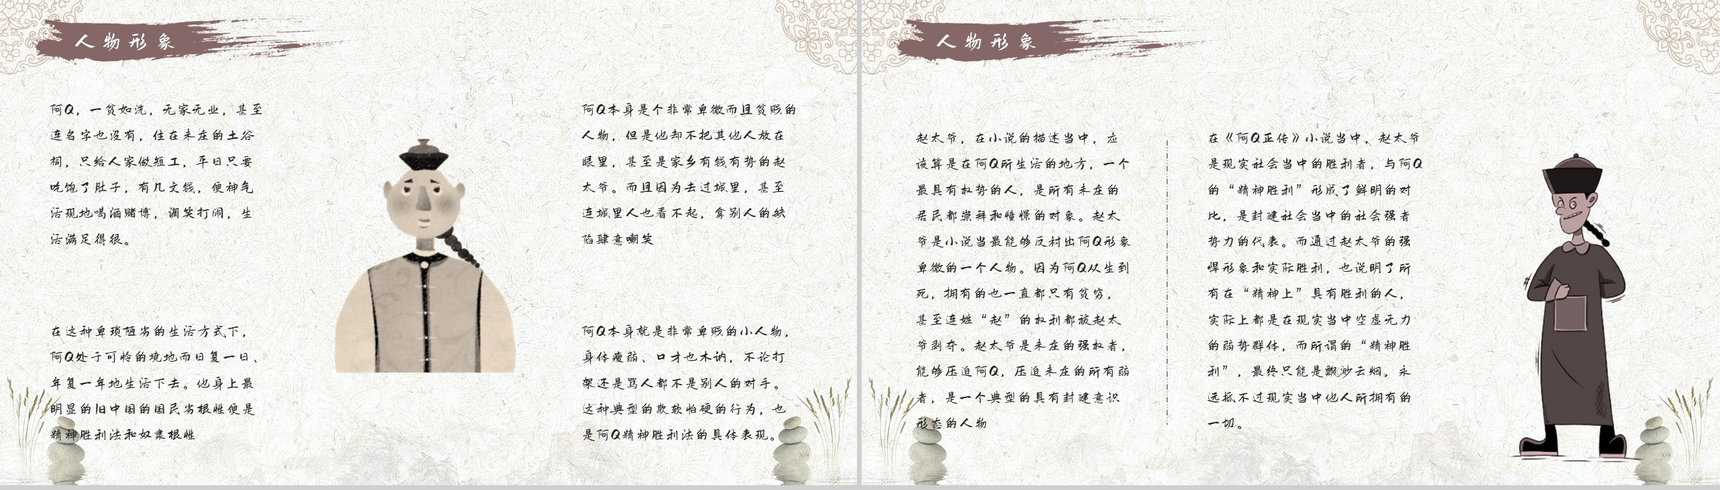 人物形象
阿Q，一贫如洗，无家无业，甚至
连名字也没有，住在未庄的土谷
祠，只给人家做短工，平日只要
吃饱了肚子，有几文钱，便神气
活现地喝酒赌博，调笑打闹，生
活满足得很。
在这种卑琐陋劣的生活方式下，
阿Q处于可怜的境地而日复一日、
年复一年地生活下去。他身上最
明显的旧中国的国民劣根性便是
精神胜利法和奴隶根性
阿Q本身是个非常卑微而且贫贱的
人物，但是他却不把其他人放在
眼里，甚至是家乡有钱有势的赵
太爷。而且因为去过城里，甚至
连城里人也看不起，拿别人的缺
陷肆意嘲笑
阿Q本身就是非常卑贱的小人物，
身体瘦弱、口才也木讷，不论打
架还是骂人都不是别人的对手。
这种典型的欺软怕硬的行为，也
是阿Q精神胜利法的具体表现。
人物形象
赵太爷，在小说的描述当中，应
该算是在阿Q所生活的地方，一个
最具有权势的人，是所有未庄的
居民都崇拜和憧憬的对象。赵太
爷是小说当最能够反衬出阿Q形象
卑微的一个人物。因为阿Q从生到
死，拥有的也一直都只有贫穷，
甚至连姓“赵”的权利都被赵太
爷剥夺。赵太爷是未庄的强权者，
能够压迫阿Q，压迫未庄的所有弱
者，是一个典型的具有封建意识
形态的人物
在《阿Q正传》小说当中，赵太爷
是现实社会当中的胜利者，与阿Q
的“精神胜利”形成了鲜明的对
比，是封建社会当中的社会强者
势力的代表。而通过赵太爷的强
悍形象和实际胜利，也说明了所
有在“精神上”具有胜利的人，
实际上都是在现实当中空虚无力
的弱势群体，而所谓的“精神胜
利”，最终只能是飘渺云烟，永
远抵不过现实当中他人所拥有的
一切。